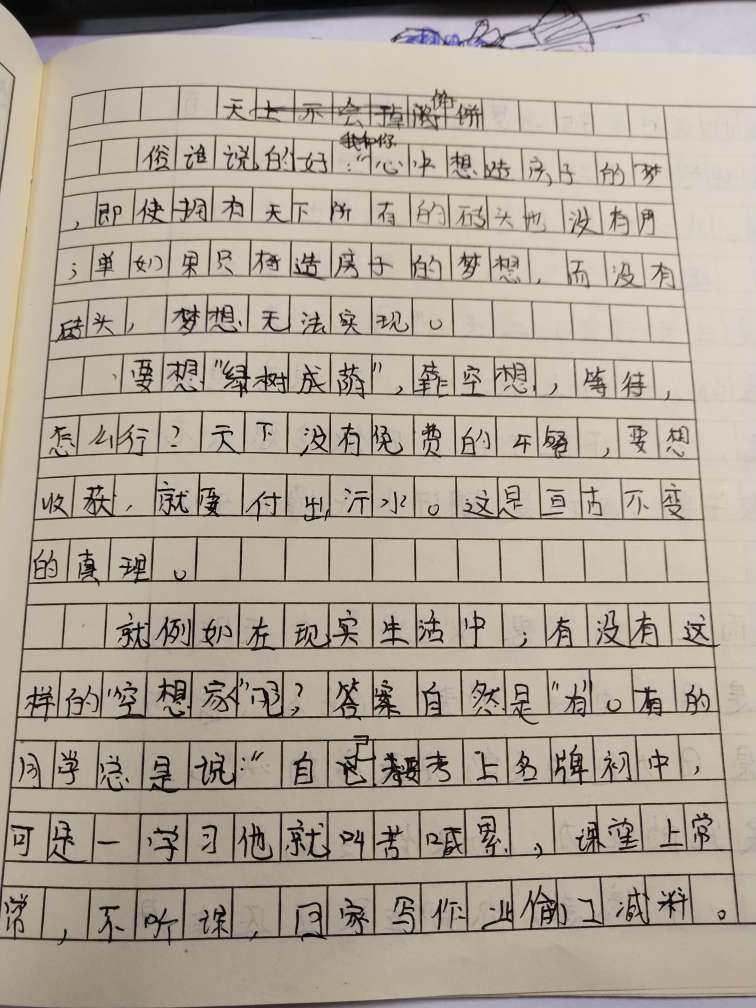 天上不会掉馅饼
俗谁说的好："心中想造房子的梦
，即使拥有天下所有的砖头也没有用
；单如果只有造房子的梦想，而没有
砖头，梦想无法实现。
要想"绿树成荫"，靠空想，等待，
怎么行？天下没有免费的午餐，要想
收获，就要付出汗水。这是亘古不变
的真理。
就例如在现实生活中；有没有这
样的"空想家"呢？答案自然是"有"。有的
同学总是说："自己要考上名牌初中，
可是一学习他就叫苦喊累，课堂上常
常，不听课，回家写作业偷工减料。